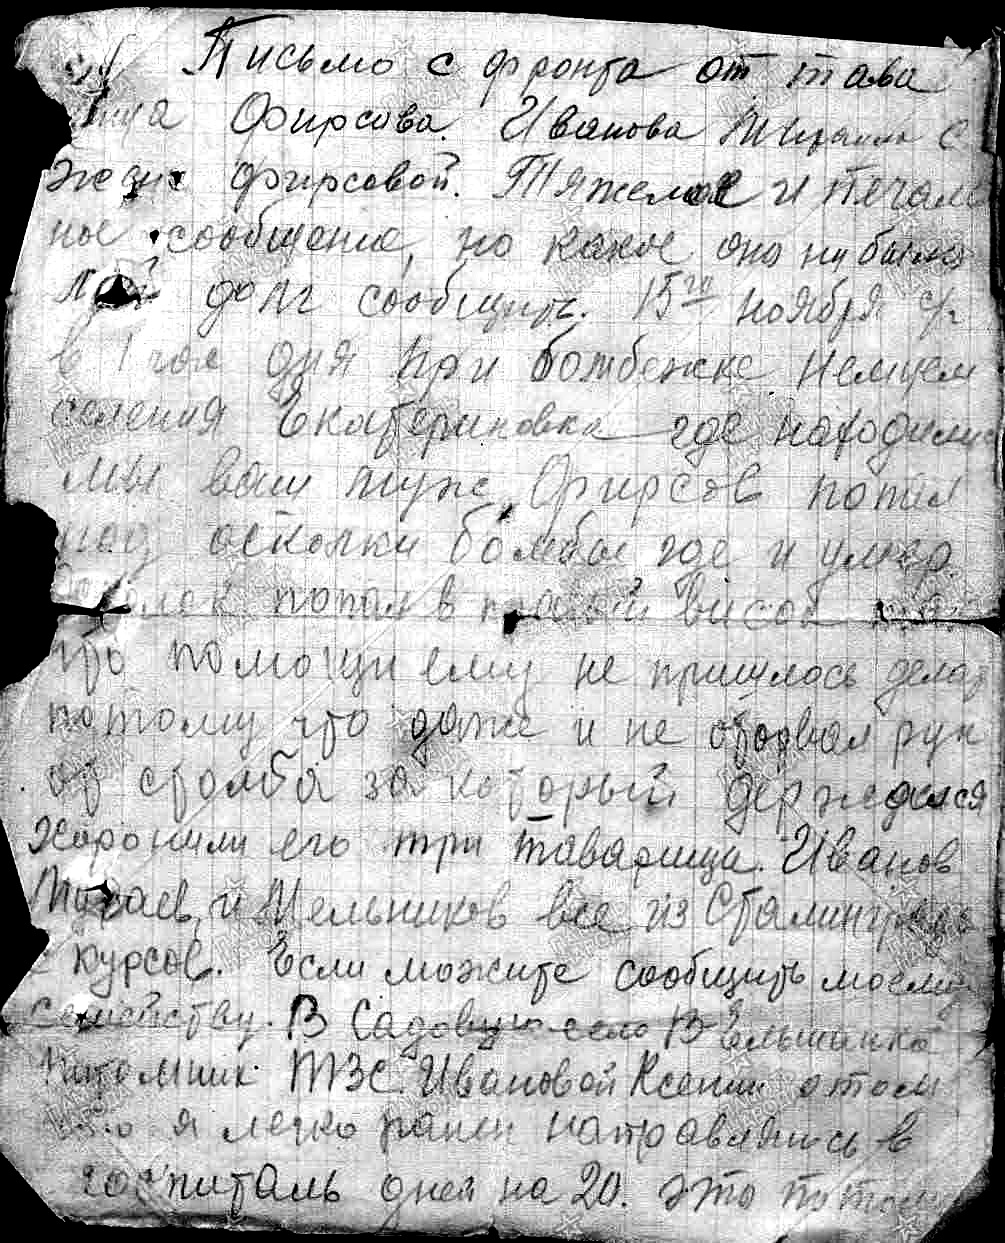 Письмо с фронта от тава
рища Фирсова. Иванова Михаила С
жене Фирсовой. Тяжелое и печаль
ное сообщение, но какое оно ни было
мой долг сообщить. 15го ноября с/г
в 1 час дня при бомбежке немцем
селения Екатериновка где находились
мы ваш муж Фирсов попал
под осколки бомбы где и умер.
Осколок попал в правый висок так
что помощи ему не пришлось делат
потому что даже и не оторвал рук
от столба за который держелся
Хоронили его три таварища. Иванов
и Мельников все из Сталинграда
с курсов. Если можите сообщить моему
семейству. В Садовую село В Ельшанка
питомник ТЗС. Ивановой Ксении о том
что я легко ранен направляюсь в
госпиталь дней на 20. это потому